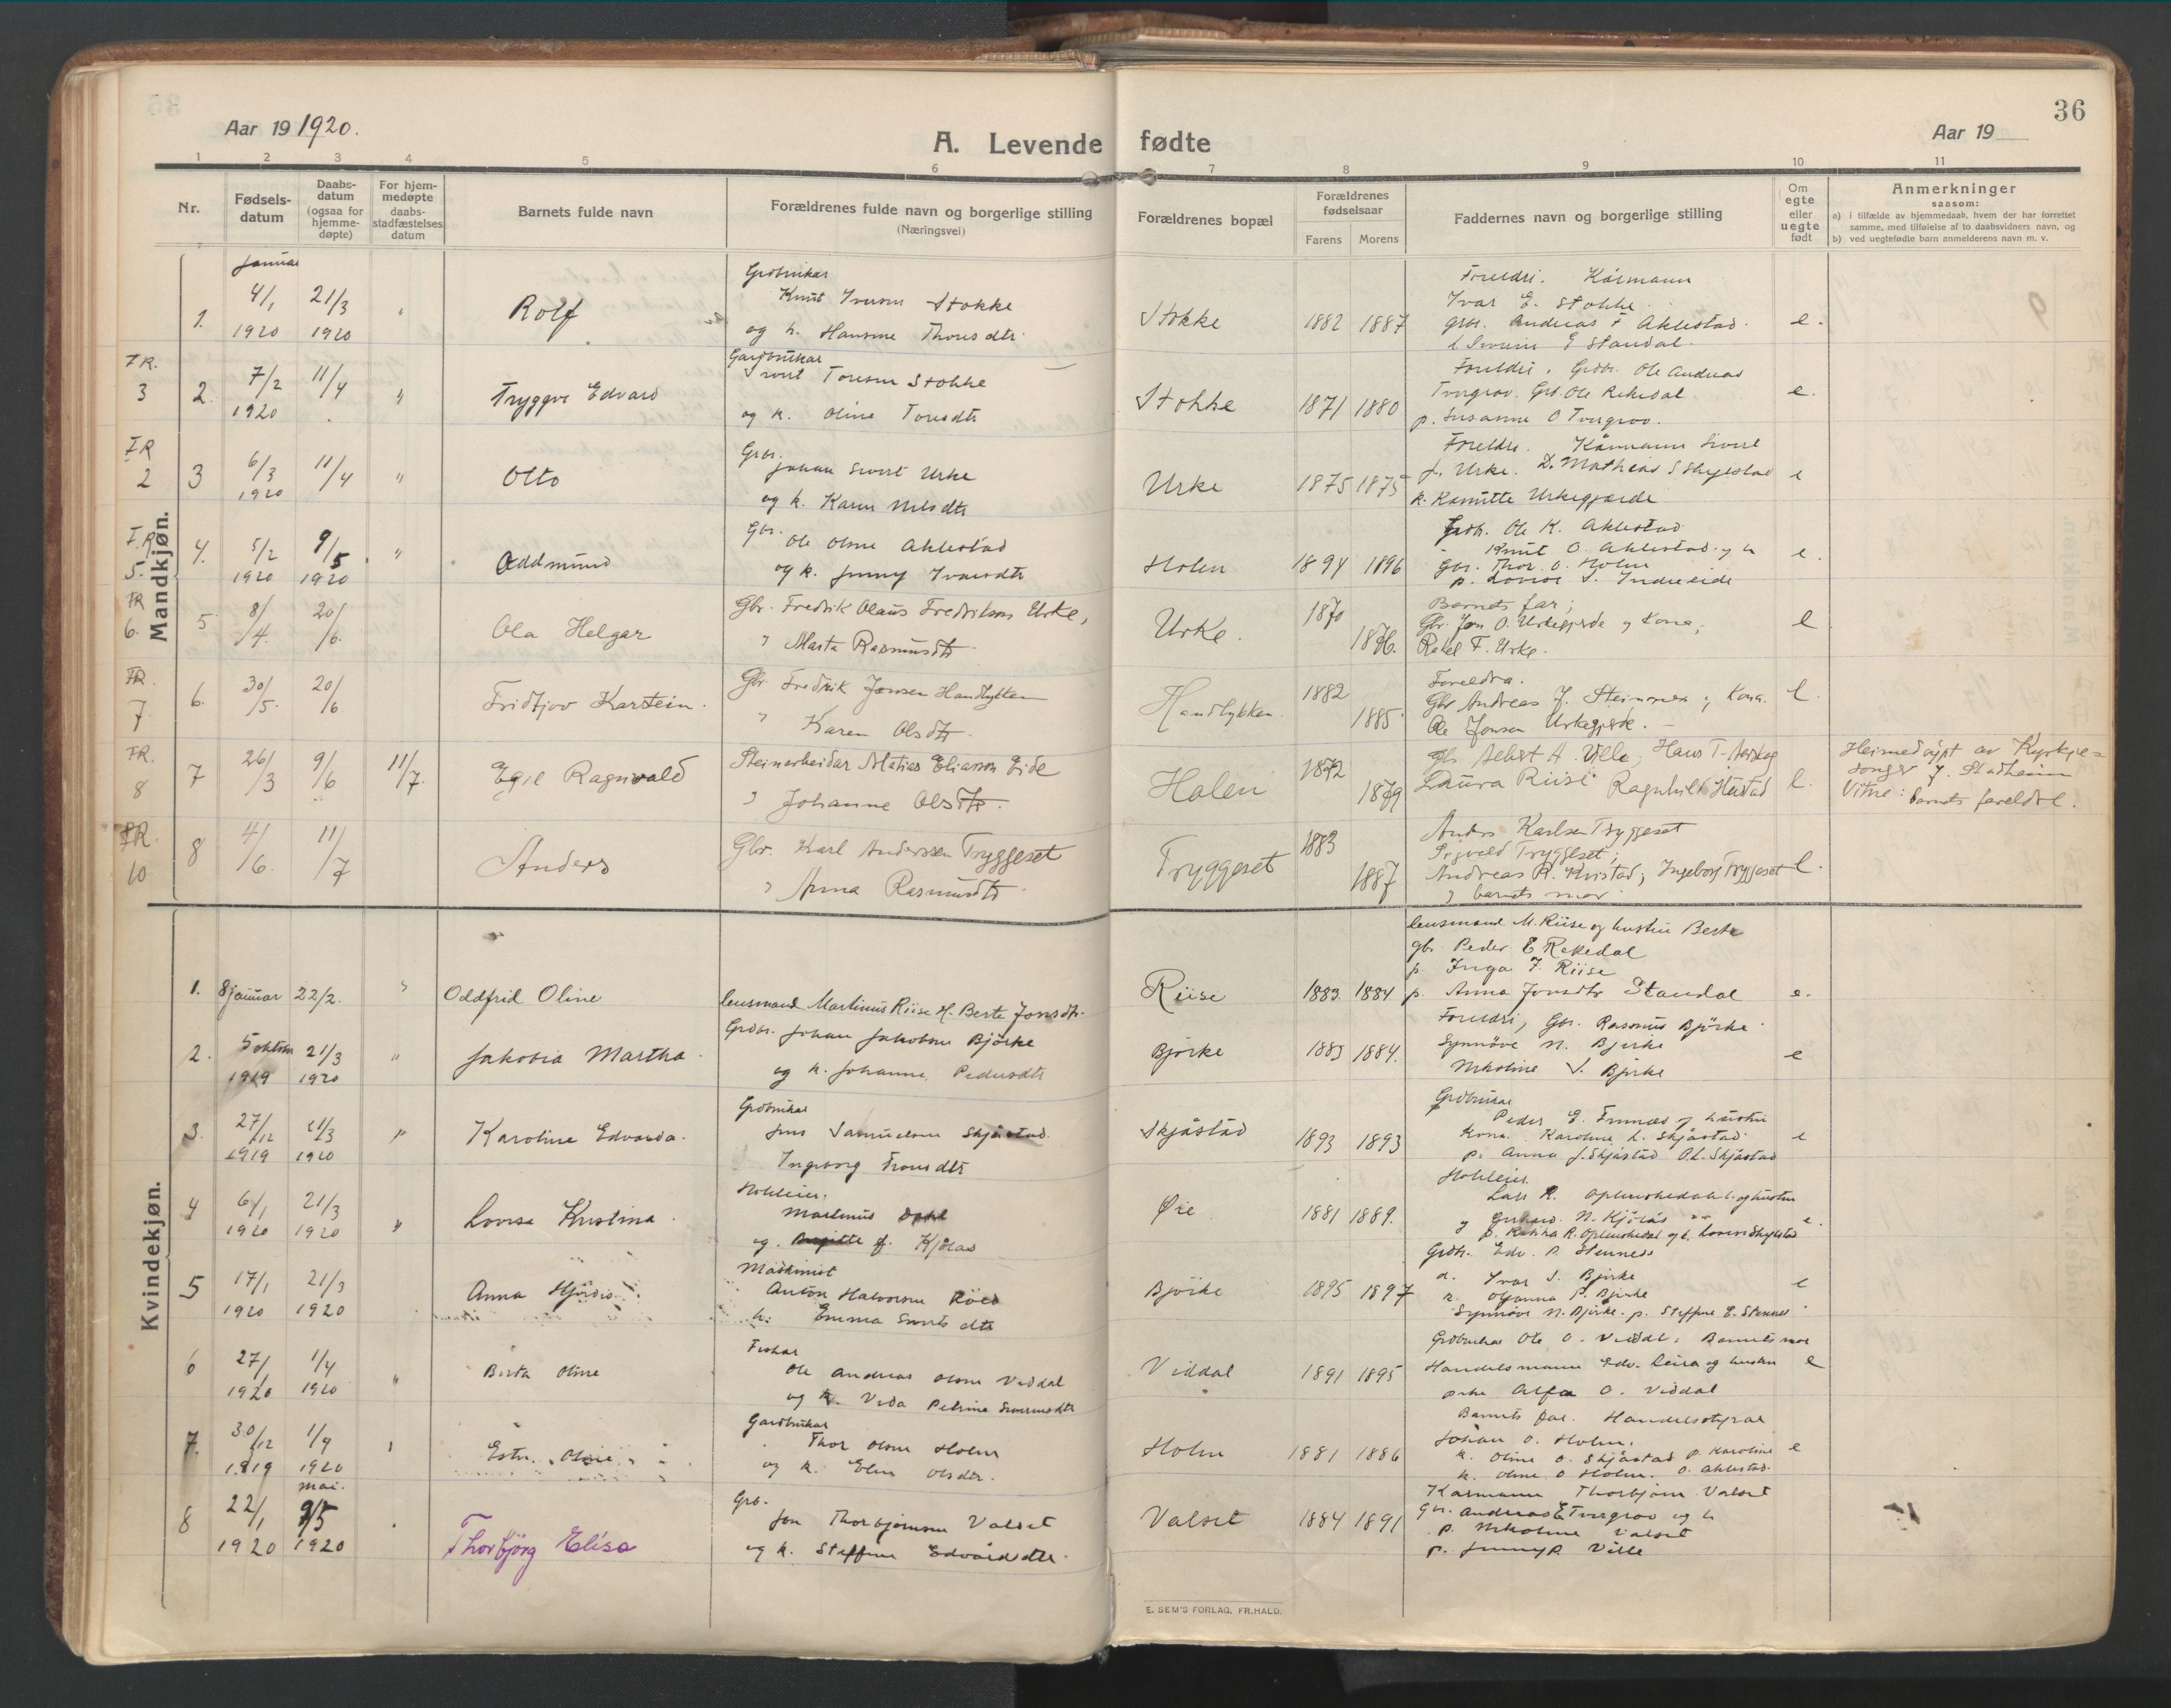 36
Aar 19 1920.
A. Levende fødte
Aar 19
1 2 3 4 5 6 7 8 9 10 11
Nr.
Fødsels-
datum
Daabs-
datum
(ogsaa for
hjemme-
døpte)
For hjem-
medøpte
daabs-
stadfæstelses
datum
Barnets fulde navn
Forældrenes fulde navn og borgerlige stilling
(Næringsvei)
Forældrenes bopæl
Forældrenes
fødselsaar
Farens Morens
Faddernes navn og borgerlige stilling
Om
egte
eller
uegte
født
Anmerkninger
saasom:
a) I tilfælde av hjemmedaab, hvem der har forrettet
samme, med tilføielse av to daabsvidners navn, og
b) ved uegtefødte barn anmelderens navn m. v.
Mandkjøn.
Januar
1. 4/1 1920 21/3 1920 "
Rolf
Grdbrukar
Knut Iversen Stokke
og h. Hansine Thorsdtr.
Stokke 1882 1887
Foreldri. Kårmann
Ivar E. Stokke
grbr. Andreas F Aklestad.
e.
FR.
3
2. 7/2 1920 11/4 "
Tryggve Edvard
Gardbrukar
Sivert Toresen Stokke
og k. Oline Toresdtr
Stokke 1871 1880
Foreldri. Grdbr. Ole Andreas
Tvergrov. Grb. Ole Rekedal
p. Susanne O Tvergrov.
e.
FR
2
3 6/3 1920 11/4 "
Otto
Grbr.
Johan Sivert Urke
og k. Karen Nilsdtr
Urke 1875 1875
Foreldri. Kårmann Sivert
J. Urke. D. Mathias S Skylestad
k. Kamitte Urkegjærde
e
F.R
5.
4. 5/2 1920 9/5 1920 "
Oddmund
Gbr.
Ole Olsen Aklestad
og k. Jenny Ivarsdtr
Holen 1894 1896
Grdb. Ole K. Aklestad
Knut O. Aklestad og h
gbr. Thor. O. Holen
p. Lovise S. Indreeide
e.
FR
6.
5. 8/4. 20/6.
Ola Helgar
Gbr. Fredrik Olaus Fredriksen Urke,
" Marta Rasmusdtr.
Urke. 1870 1876.
Barnets far;
Gbr. Jon O. Urkegjerde og Kona;
Rakel F. Urke.
e
FR.
7.
6. 30/5. 20/6
Fridtjov Karstein.
Gbr. Fredrik Jonsen Handlykken
" Karen Olsdtr.
Handlykken. 1882 1885.
Foreldra.
Gbr Andreas J. Steinnes og Kona.
Ole Jonsen Urkegjerde. —
e.
FR.
8
7 26/3 9/6 11/7.
Egil Ragnvald
Steinarbeidar Matias Eliassen Eide
" Johanne Olsdtr.
Holen 1872 1879
Laura Riise Ragnhild Hustad
e.
Heimedøypt av Kyrkje=
songer J. Stadheim
Vitne: Barnets foreldre.
FR.
10
8 4/6. 11/7
Anders
Gbr. Karl Anderssen Tryggeset
" Anna Rasmusdtr.
Tryggeset 1883 1887
Anders Karlsen Tryggeset
Sigvald Tryggeset;
Andreas R. Kvistad; Ingeborg Tryggeset
og barnets mor.
e.
Kvindekjøn.
1. 8 januar 22/2. "
Oddfrid Oline
lensmand Martinus Riise H. Berte Jonsdtr.
Riise 1883 1884
lensmand M. Riise og hustru Berte
gbr. Peder E Rekedal
p. Inga J. Riise
p. Anna Jonsdtr Standal
e.
2. 5 oktbr 1919 21/3 1920 "
Jakobia Martha.
Grdbr. Johan Jakobsen Bjørke
og k. Johanne Pedersdtr
Bjørke 1883 1884.
Foreldri, Gbr. Rasmus Bjørke.
Synnøve N. Bjørke
Nikoline S. Bjørke
e
3. 27/12 1919 21/3 1920 "
Karoline Edvarda.
Grdbrukar
Jens Samuelsen Skjåstad.
Ingeborg Tronsdtr
Skjåstad 1893 1893
Grdbrukar
Peder E. Finnes og hustru
kona. Karoline L. Skjåstad
p. Anna J. Skjåstad O.L. Skjåstad
e
4 6/1 1920 21/3 1920 "
Lovisa Kristina.
Hokleier.
Martinus Dahl
og. Birgitte f. Kjølås
Øie 1881 1889.
Hokleier
Lars R. Oplenskedal og hustru
og Gerhard N. Kjølås
e.
5 17/1 1920 21/3 1920
Anna Hjørdis
Maskinist
Anton Halvorsen Röed
k. Emma Sivertsdtr
Bjørke 1895 1897
Grdbr. Edv. P. Stennes
d. Ivar S. Bjørke
Synnøve N. Bjørke. p. Steffine E. Stennes
e
6 27/1 1920 1/4 1920 "
Berta Oline
Fiskar
Ole Andreas Olsen Viddal
og k. Vida Petrine Sivertsdtr
Viddal 1891 1895
Grdbrukar Ole O. Viddal. Barnets mor
Handelsmann Edv. Leira og hustru
pike Alfa O. Viddal
e
7. 30/12 1919 1/4 1920
Gardbrukar
Thor Olsen Holen
og k. Elen Olsdtr.
Holen 1881 1886
Barnets far. Handelsstyrar
Johan O. Holen.
k. Oline O. Skjåstad p. Karoline
k. Oline O Holen. O. Aklestad.
e
8 22/1 1920 mai. 9/5 1920
Thorbjörg Elisa
Grb.
Jon Thorbjørnsen Valset
og k. Steffine Edvardsdtr.
Valset 1884 1891
Kårmann Thorbjørn Valset
Gbr. Andreas E Tvergrov og h
p. Nikoline Valset
p. Jenny P. Ville
E. SEM'S FORLAG, FR.HALD.